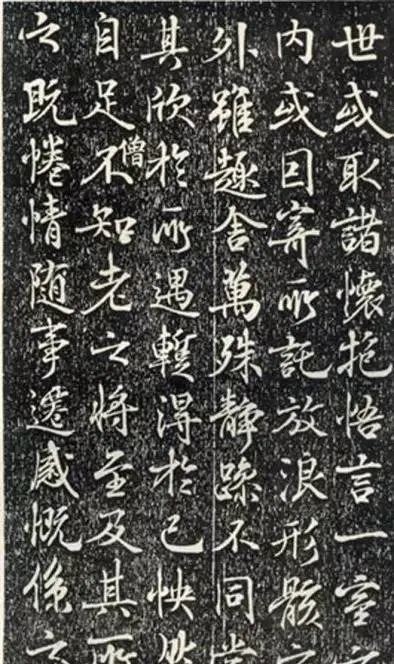 世或取諸懷抱悟言一室之
内或因寄所託放浪形骸之
外雖趣舍萬殊静躁不同當
其欣於所遇蹔得於己怏然
僧
自足不知老之將至及其所
之既惓情随事遷感慨係之